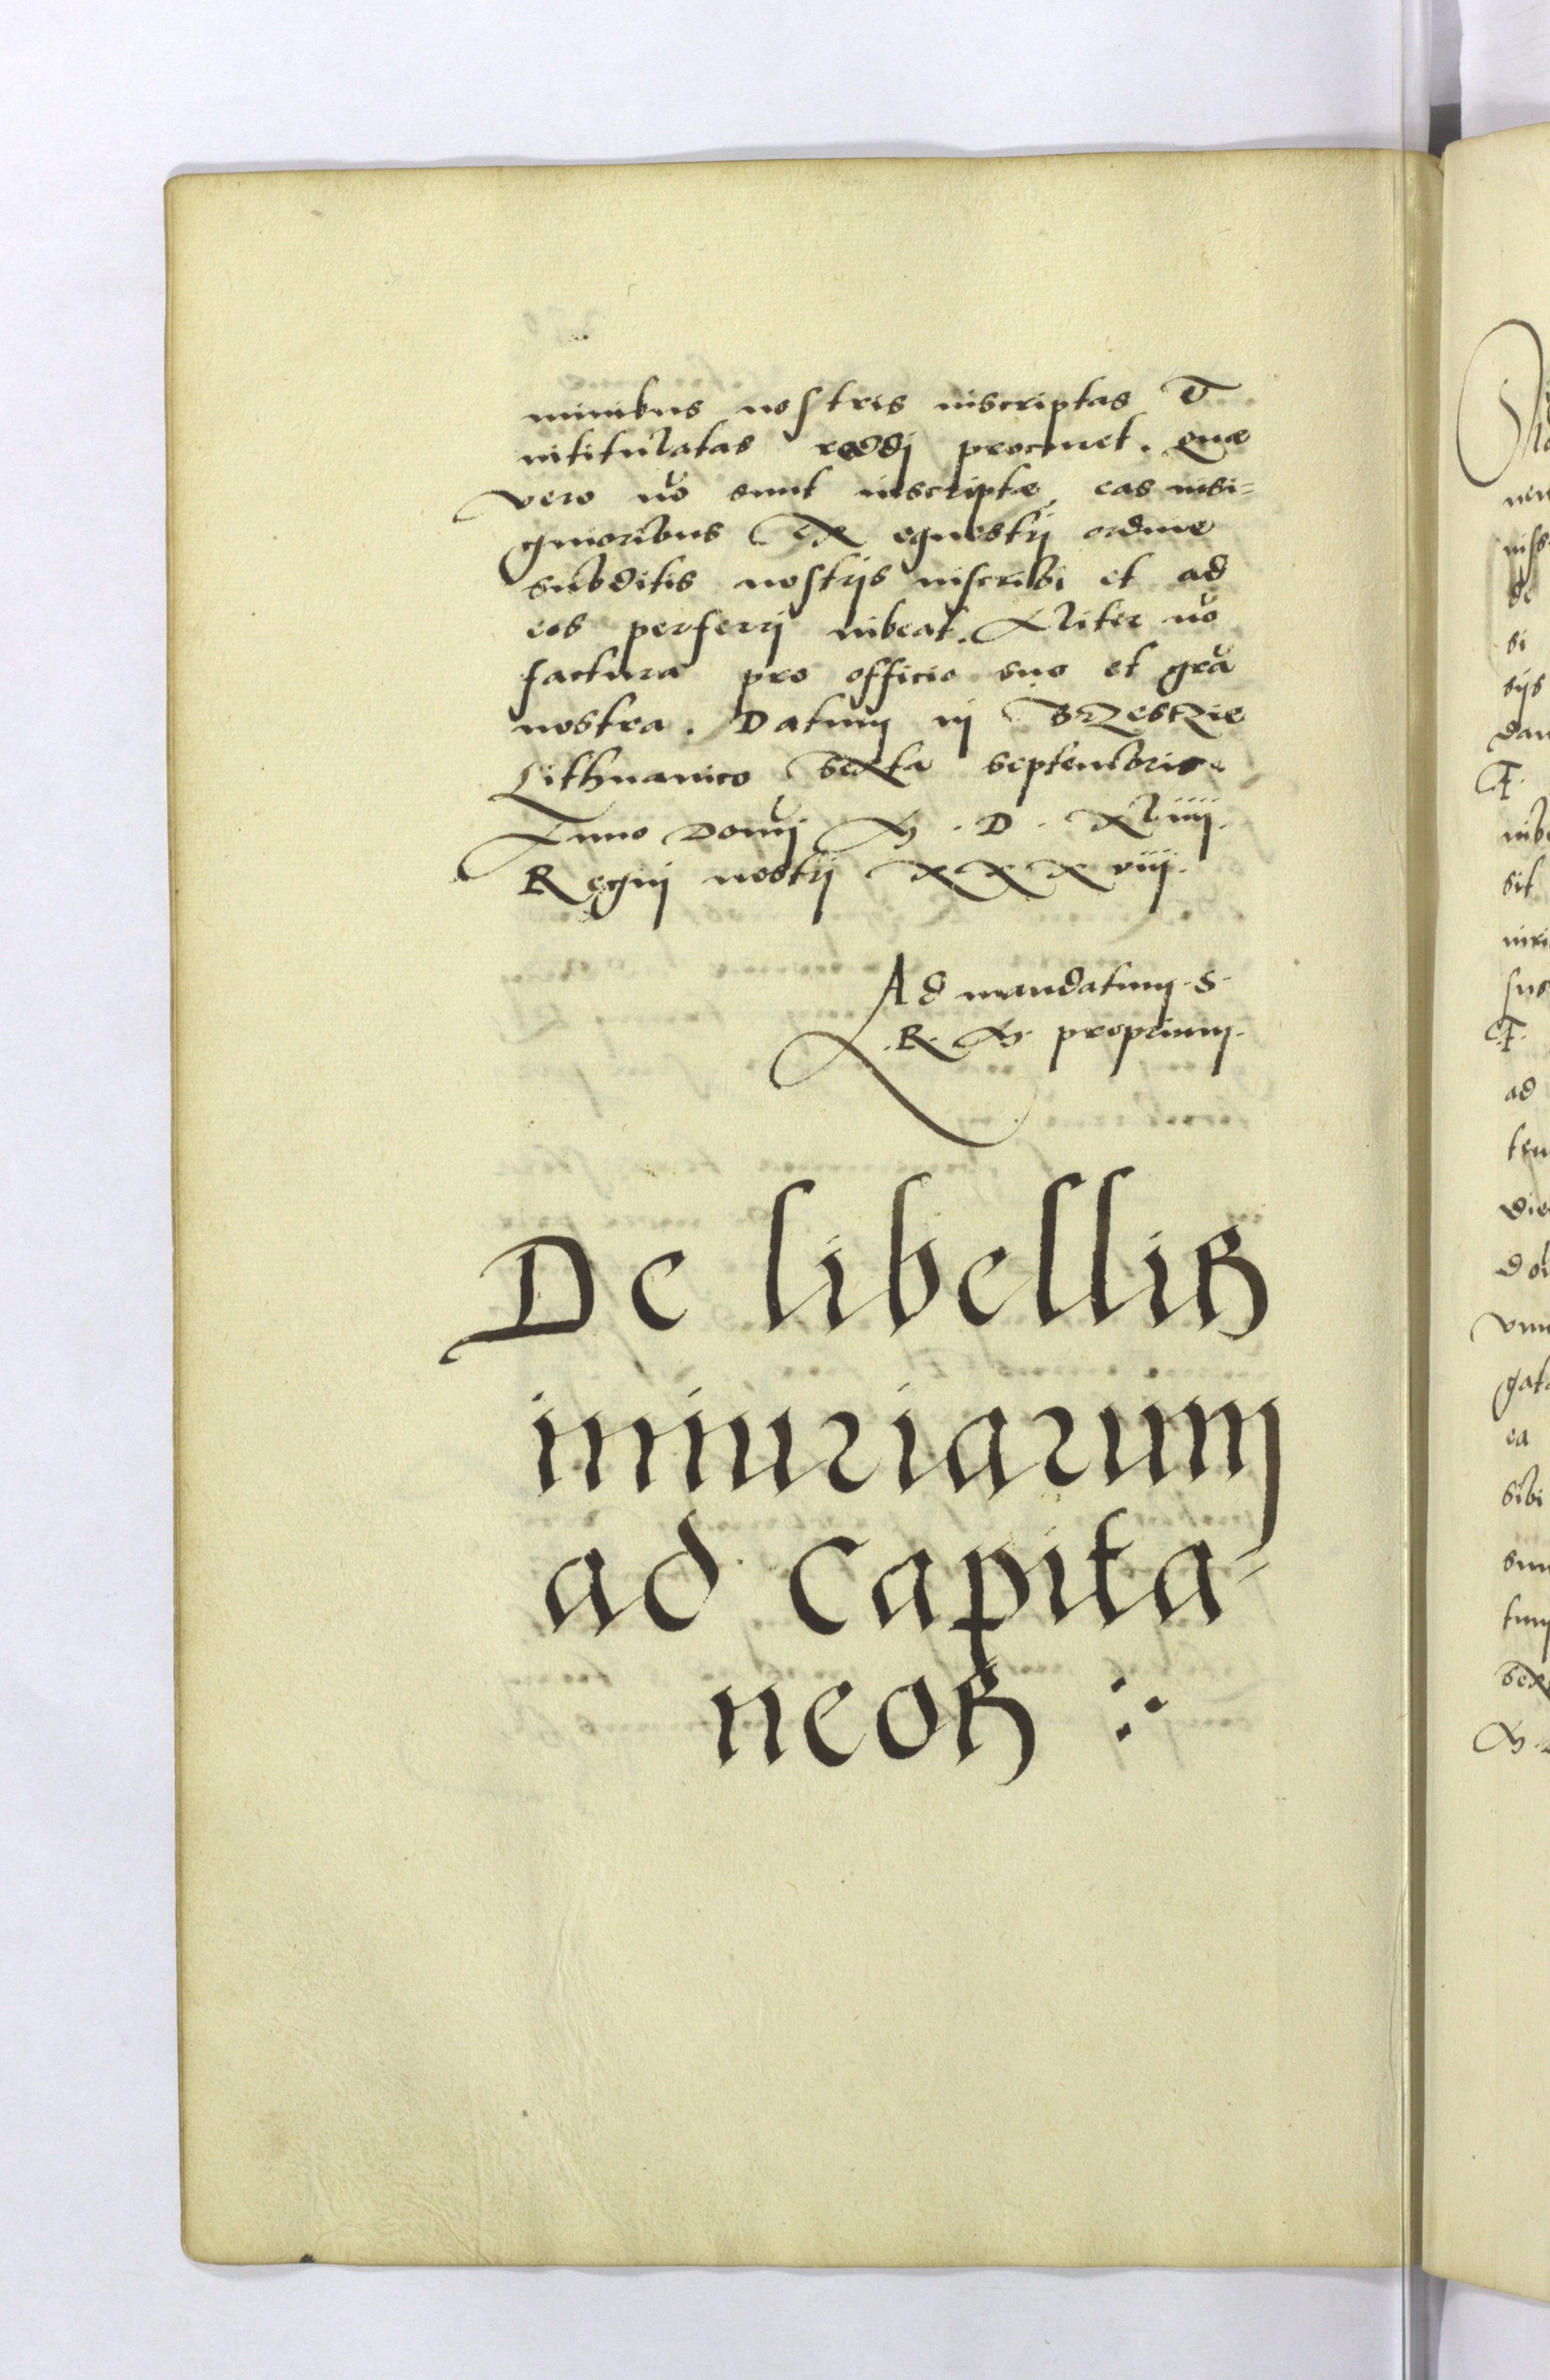 minibus nostris inscriptas &
intitulatas reddj procuret. quae
vero nō sunt inscriptae, eas insi=
gnioribus Ex equestrj ordine
subditis nostrjs inscribi et ad
eos perferrj iubeat. Aliter nō
factura pro officio suo et grā
nostra. Datum in Brzesczie
Lithuanico Sexta Septembris.
Anno Domī M. D. XLiiij.
Regnj nostrj XXXviij.
Ad mandatum S.
R. M. proprium.
De libellis
iniuriarum
ad Capita-
neos :·